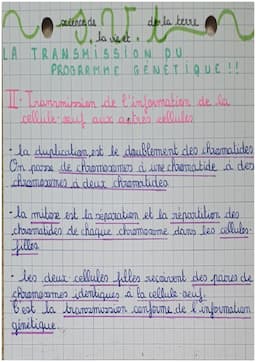 sciences de la vie et de la terre
S.V.T
LA TRANSMISSION DU
PROGRAMME GÉNÉTIQUE !!
II- Transmission de l'information de la
cellule-œuf aux autres cellules
• La duplication est le doublement des chromatides
On passe de chromosomes à une chromatide à des
chromosomes à deux chromatides
• La mitose est la séparation et la répartition des
chromatides de chaque chromosome dans les cellules-
filles
• Les deux cellules filles reçoivent des paires de
chromosomes identiques à la cellule-œuf.
C'est la transmission conforme de l'information
génétique.